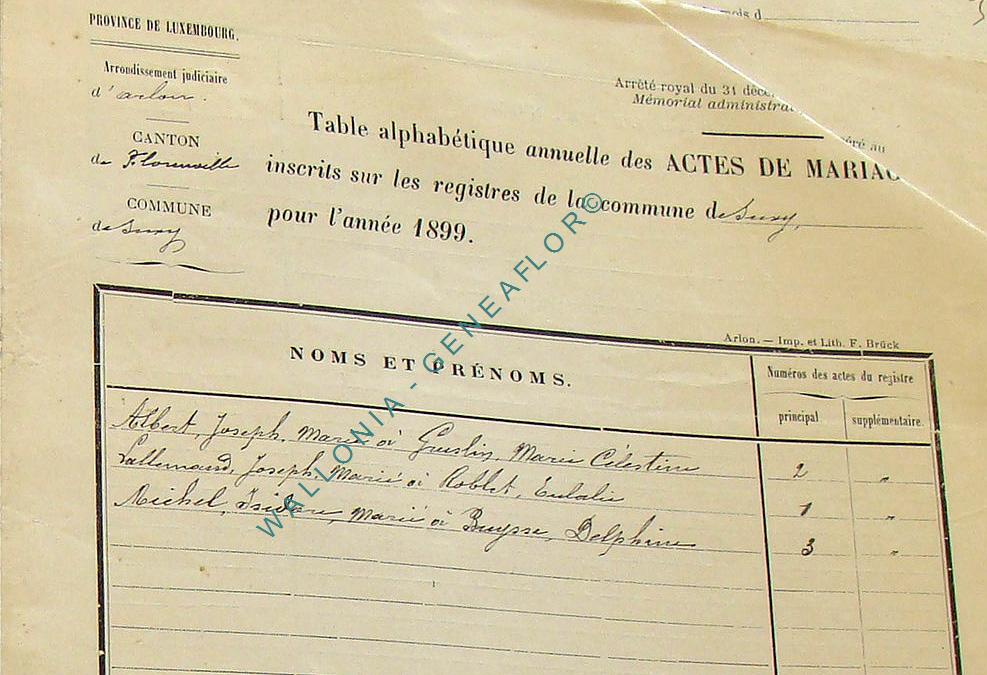 mois d
PROVINCE DE LUXEMBOURG.
Arrondissement judiciaire
d'arlon.
CANTON
de Florenville
COMMUNE
de Suxy
Arrêté royal du 31 déce
Mémorial administrat
éré au
Table alphabétique annuelle des ACTES DE MARIAG
inscrits sur les registres de la commune de Suxy,
pour l'année 1899.
WALLONIA - GENEAFLOR©
Arlon. — Imp. et Lith. F. Brück
NOMS ET PRÉNOMS.
Numéros des actes du registre
principal
supplémentaire.
Albert, Joseph, Marié à Marie Célestine 2 "
Lallemand, Joseph, Marié à Roblet, Eulalie 1 "
Michel, Isidore, Marié à Buysse, Delphine 3 "